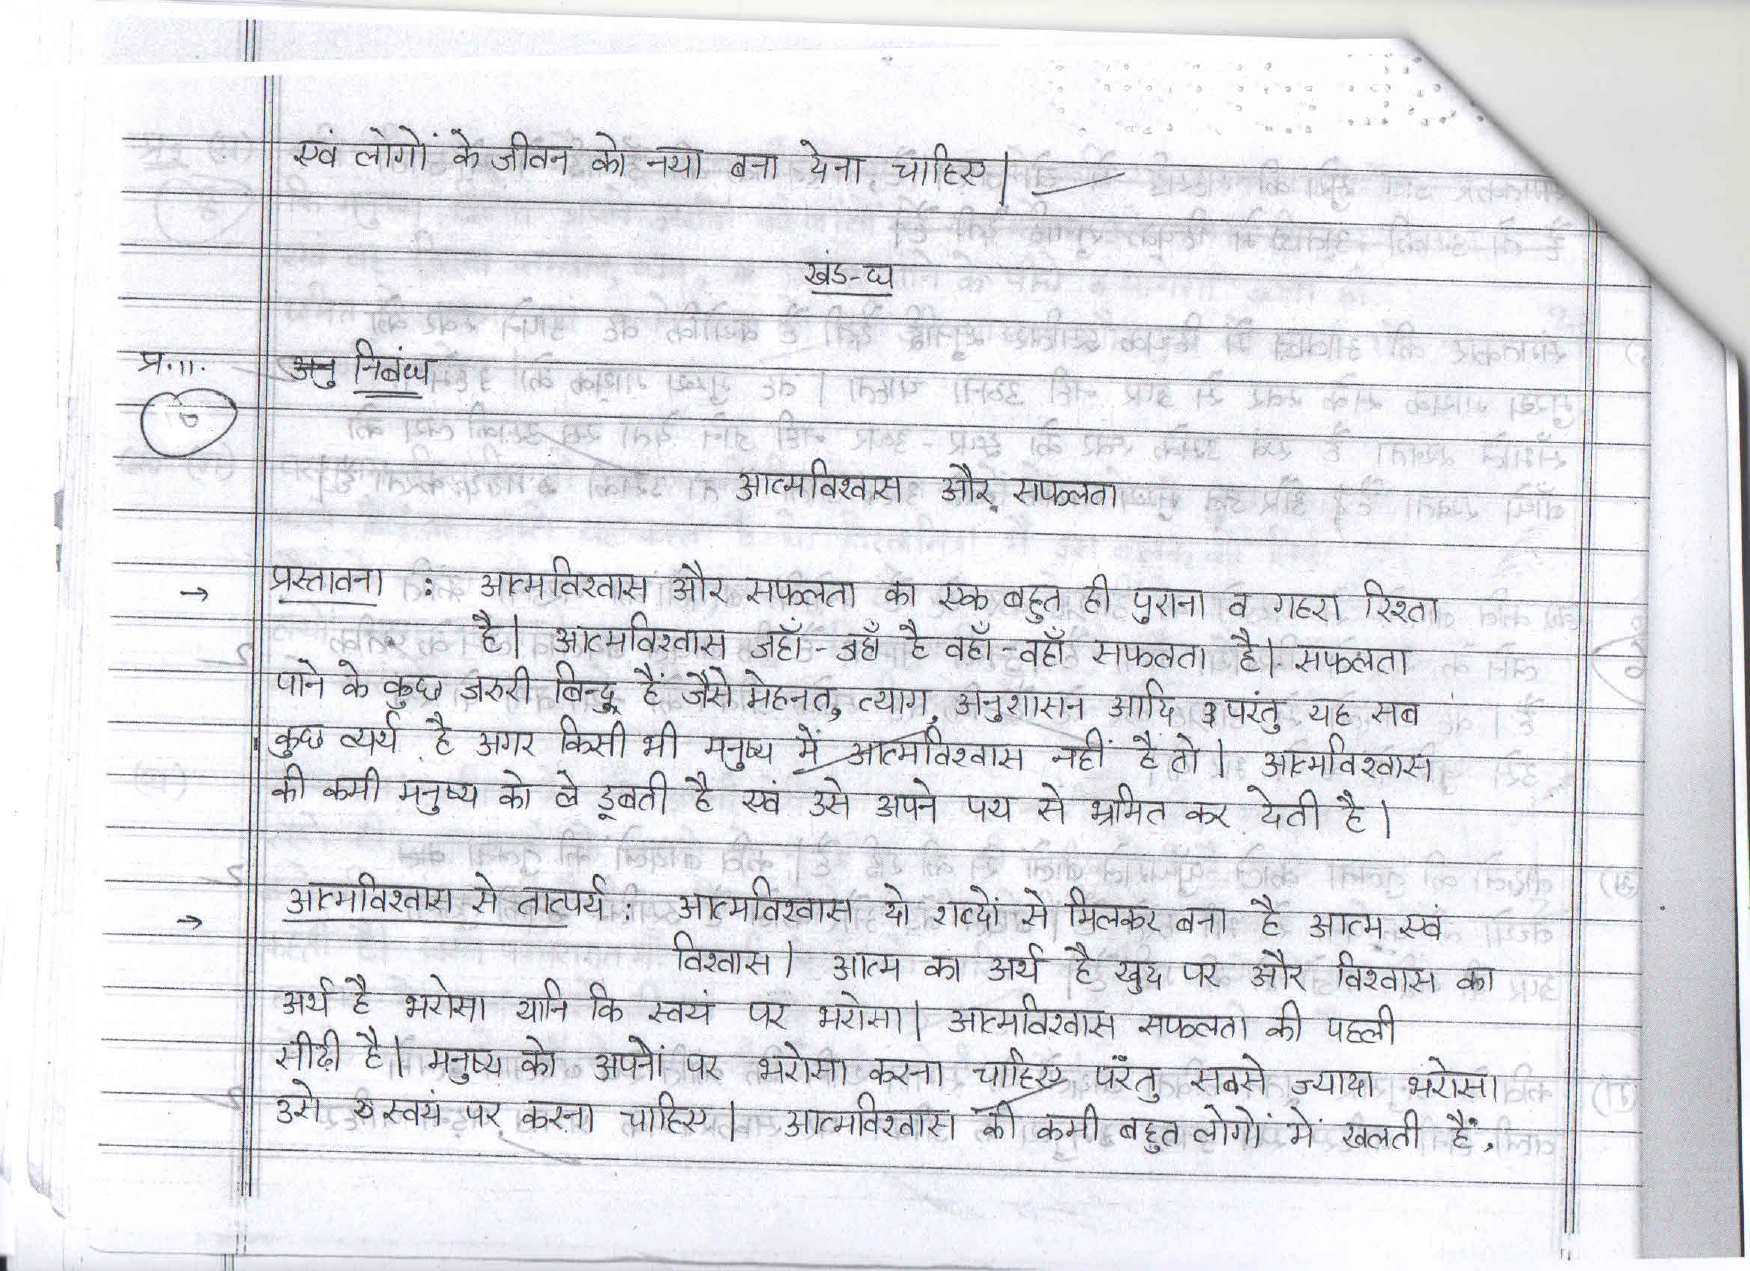 एवं लोगों के जीवन को नया बना देना चाहिए।
खंड-घ
प्र.11. अनु निबंध
आत्मविश्वास और सफलता
→ प्रस्तावना : आत्मविश्वास और सफलता का एक बहुत ही पुराना व गहरा रिश्ता
है। आत्मविश्वास जहाँ-जहाँ है वहाँ-वहाँ सफलता है। सफलता
पाने के कुछ जरुरी बिन्दु हैं जैसे मेहनत, त्याग, अनुशासन आदि परंतु यह सब
कुछ व्यर्थ है अगर किसी भी मनुष्य में आत्मविश्वास नहीं है तो। आत्मविश्वास
की कमी मनुष्य को ले डूबती है एवं उसे अपने पथ से भ्रमित कर देती है।
→ आत्मविश्वास से तात्पर्य : आत्मविश्वास दो शब्दों से मिलकर बना है आत्म एवं
विश्वास। आत्म का अर्थ है खुद पर और विश्वास का
अर्थ है भरोसा यानि कि स्वयं पर भरोसा। आत्मविश्वास सफलता की पहली
सीढ़ी है। मनुष्य को अपनों पर भरोसा करना चाहिए परंतु सबसे ज्यादा भरोसा
उसे स्वयं पर करना चाहिए। आत्मविश्वास की कमी बहुत लोगों में खलती है,